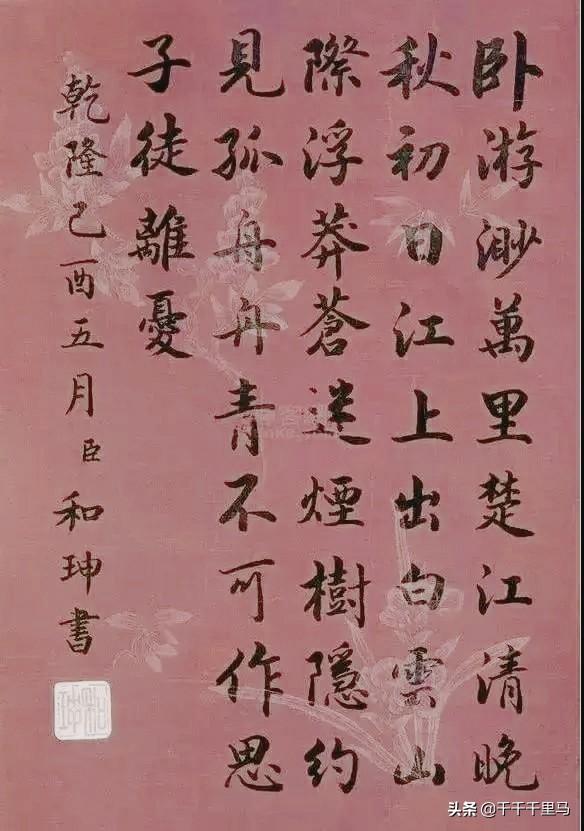 卧游渺萬里楚江清晚
秋初日江上出白雲山
際浮莽蒼迷煙樹隱約
見孤舟舟青不可作思
子徒離憂
乾隆己酉五月臣和珅書
头条 @千千千里马